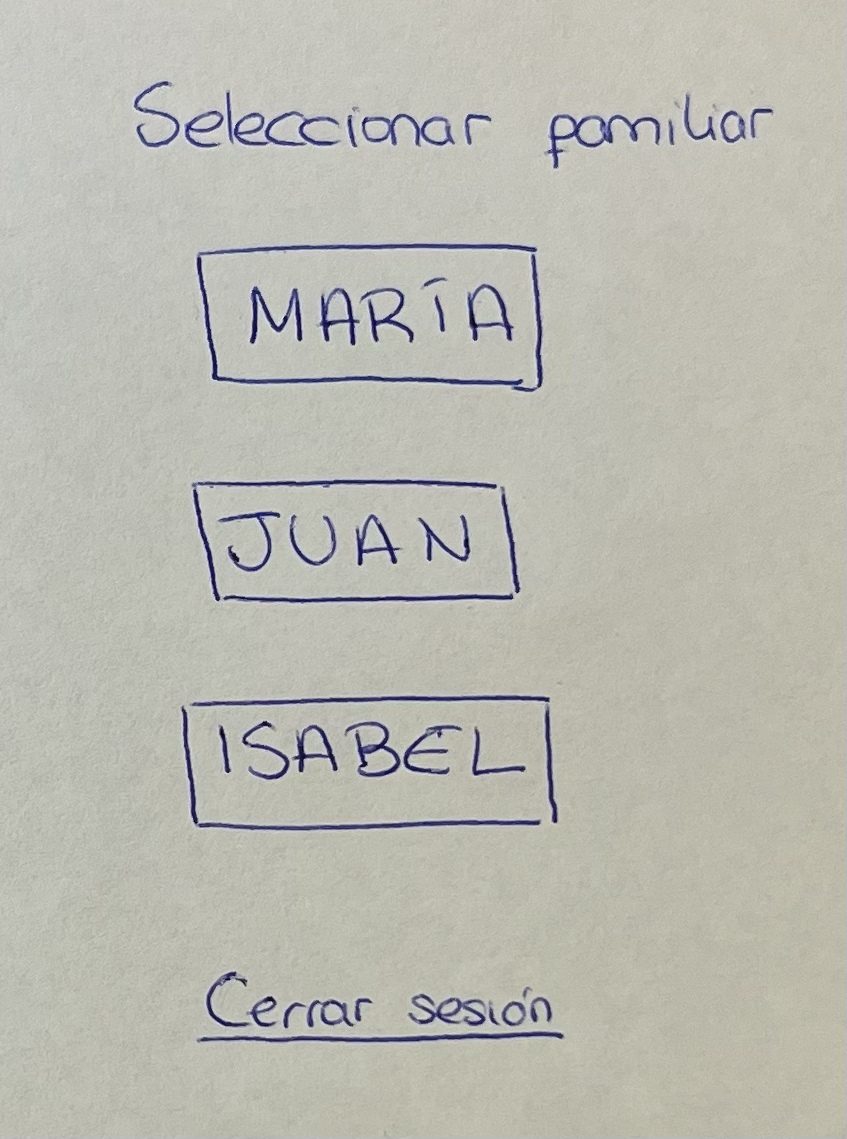 Seleccionar familiar
MARÍA
JUAN
ISABEL
Cerrar sesión